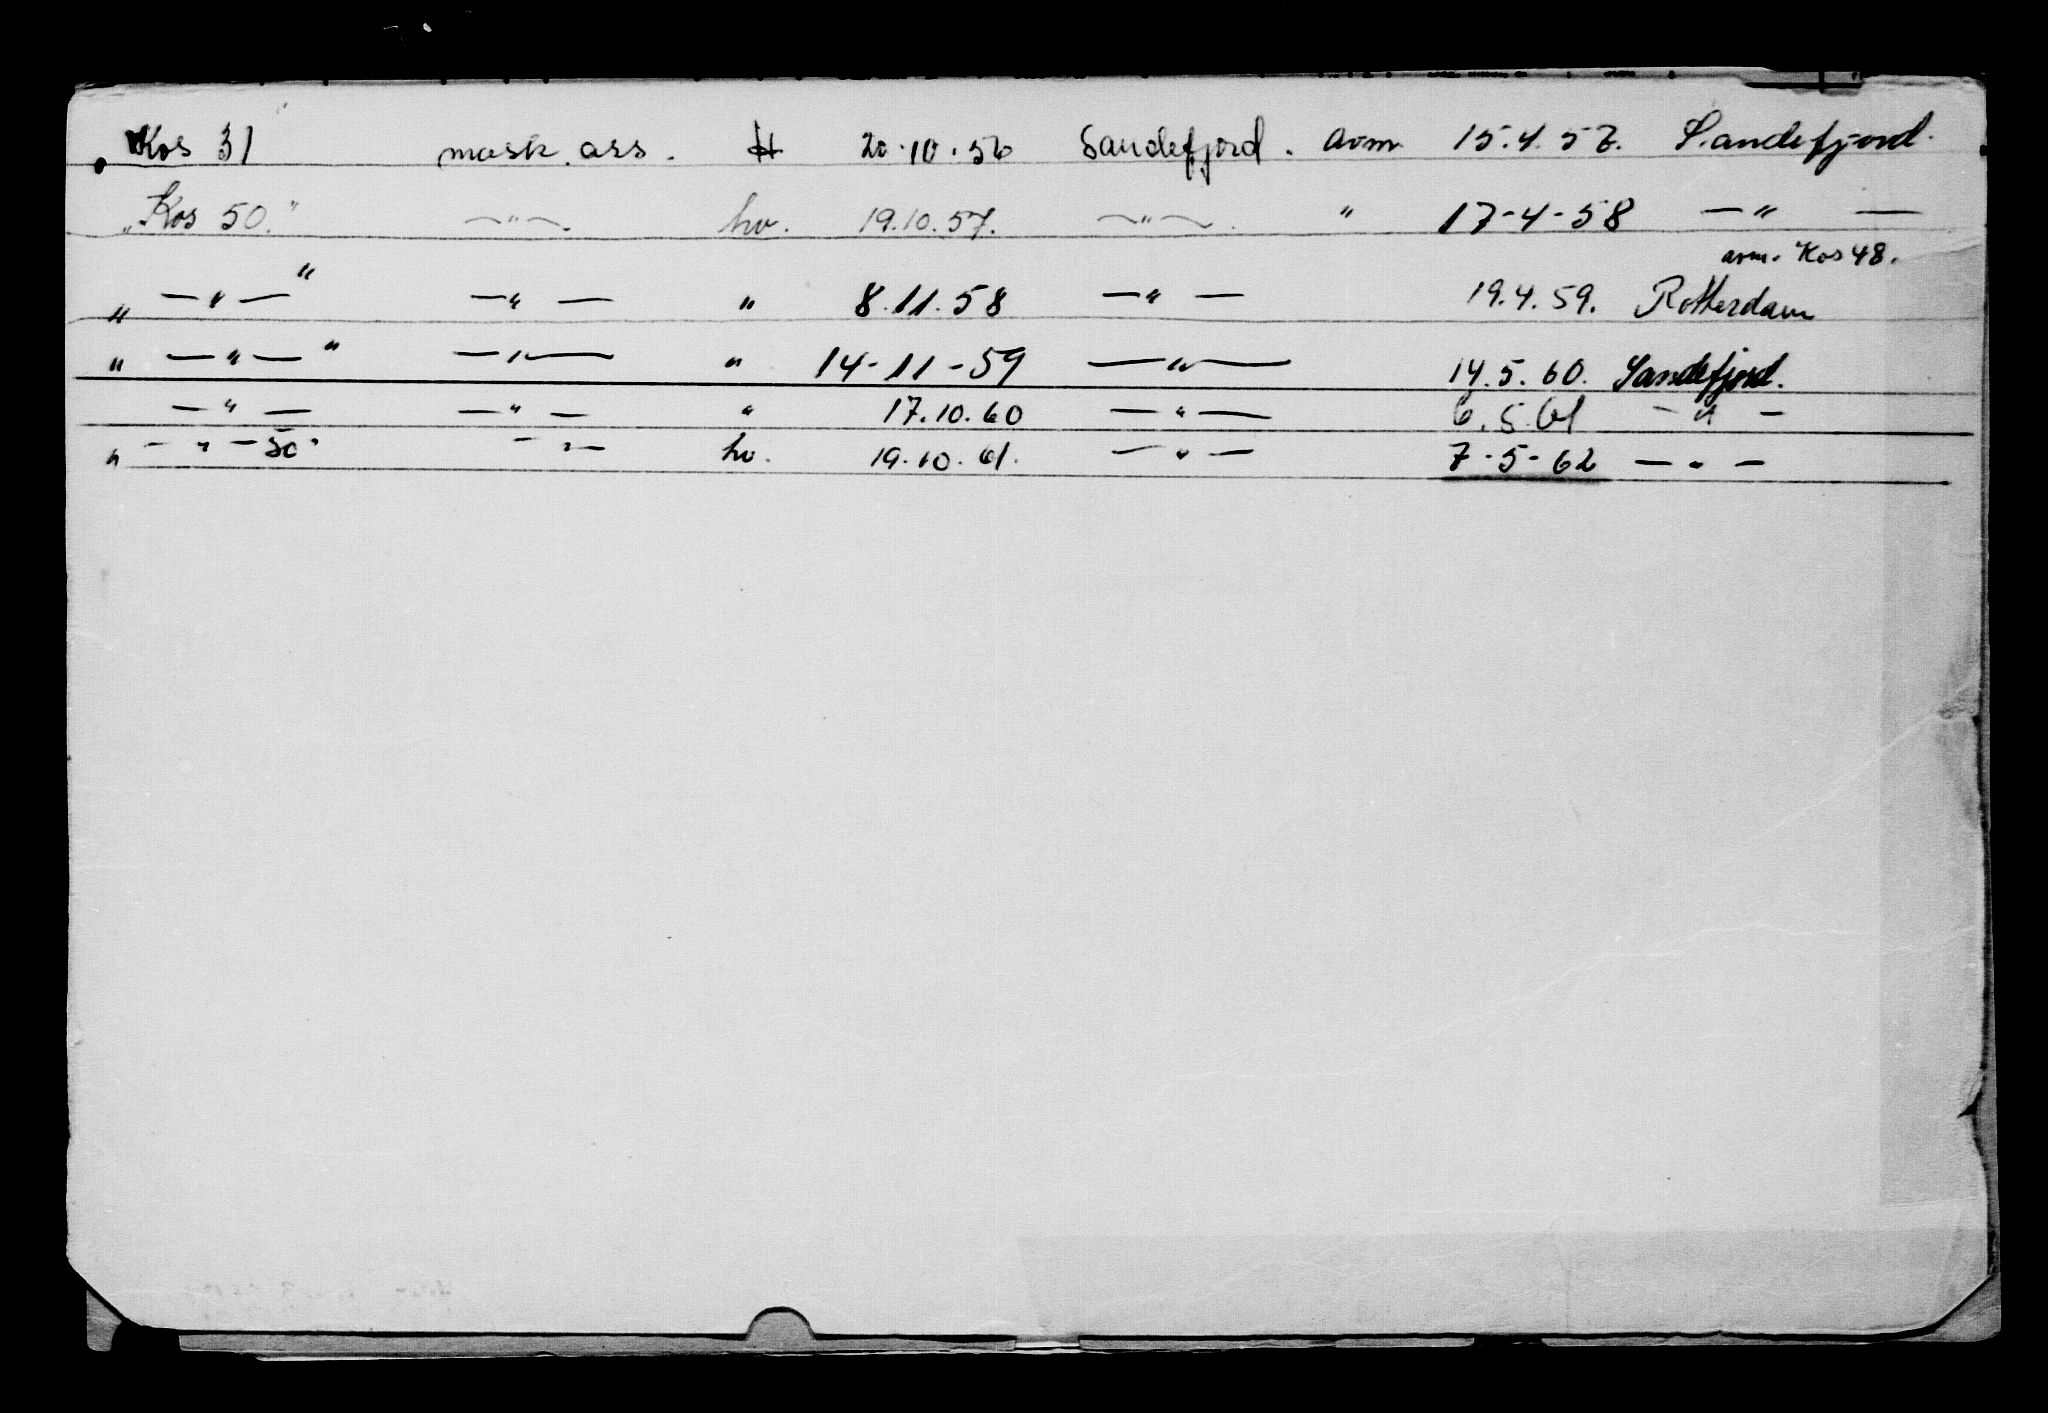 Kos 31 mask. ass. H 20.10.56 Sandefjord. avm. 15.4.57. Sandefjord.
„Kos 50." —"—. hv. 19.10.57. —"—. " 17-4-58 —"—
avm. Kos 48.
„ —"— " —"— " 8.11.58 —"— 19.4.59. Rotterdam
„ —"— " —"— " 14-11-59 —"— 14.5.60. Sandefjord.
—"— —"— " 17.10.60 —"— 6.5.61 —"—
„ —"— 50" —"— hv. 19.10.61. —"— 7-5-62 —"—